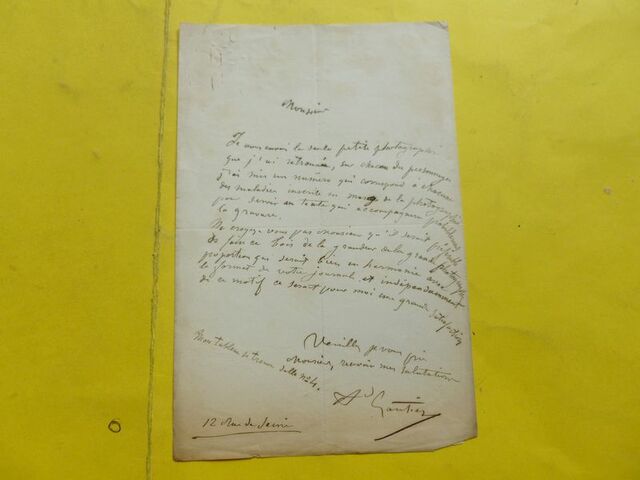 Monsieur
Je vous envoi la seule petite photographie
que j'ai retrouvée, sur chacun des personnages
j'ai mis un numéro qui correspond à chacune
des maladies inscrite en marge de la photographie
pour servir au texte qui accompagnera
la gravure.
Ne croyez vous pas Monsieur qu'il serait
de faire ce bois de la grandeur de la grande photographie
proportion qui serait bien en harmonie avec
le format de votre journal, et indépendamment
de ce motif ce serait pour moi une grande satisfaction
Veuillez je vous prie
Monsieur, recevoir mes salutations
Mon tableau se trouve salle no 4.
Ad Gautier
12 Rue de Seine